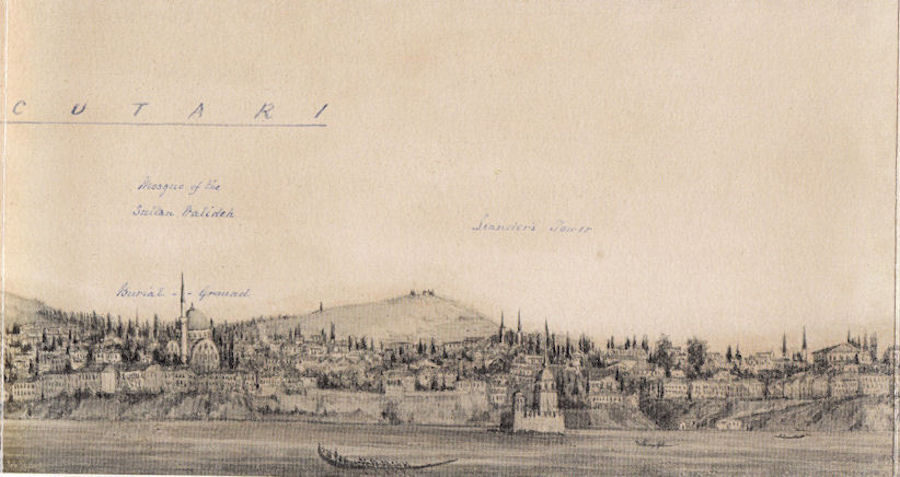 CUTARI
Mosque of the
Sultan Valideh
Leander's Tower
Burial - - Ground